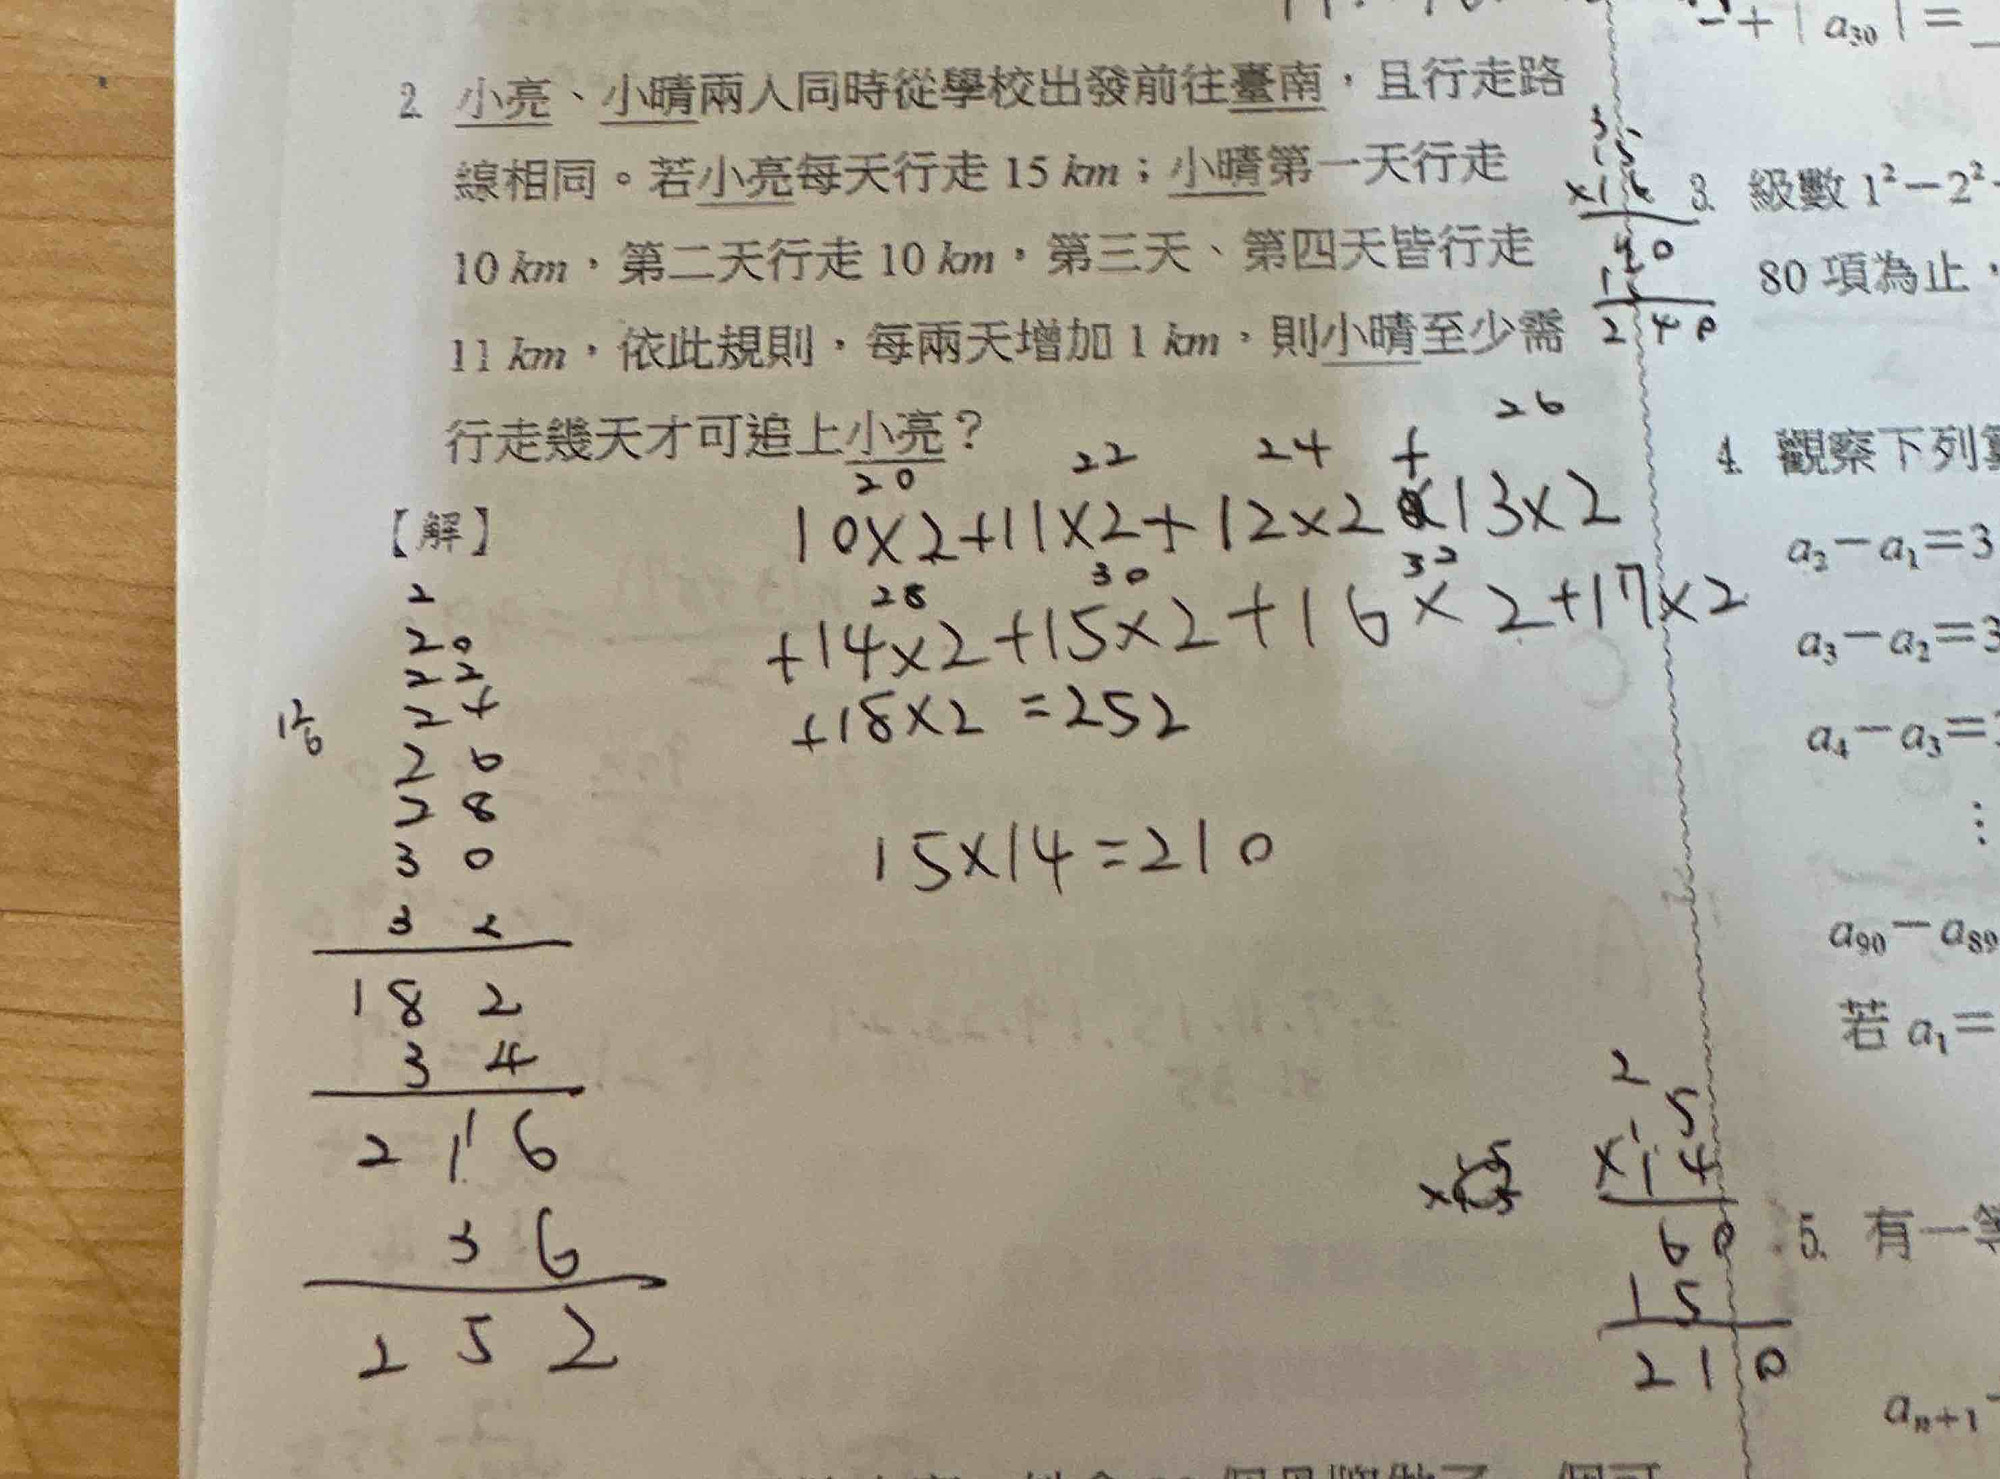 +|a₃₀|=
2 小亮、小晴兩人同時從學校出發前往臺南，且行走路
線相同。若小亮每天行走 15 km；小晴第一天行走
10 km，第二天行走 10 km，第三天、第四天皆行走
11 km，依此規則，每兩天增加 1 km，則小晴至少需
行走幾天才可追上小亮？
【解】
20 22 24 26
10×2+11×2+12×2+13×2
28 30 32
+14×2+15×2+16×2+17×2
+18×2=252
15×14=210
2
20
22
24
26
28
30
32
182
34
216
36
252
15
×16
90
15
240
2
15
×14
60
15
210
3. 級數 1²−2²
80 項為止，
4. 觀察下列
a₂−a₁=3
a₃−a₂=3
a₄−a₃=
⋮
a₉₀−a₈₉
若 a₁=
5. 有一等
aₙ₊₁